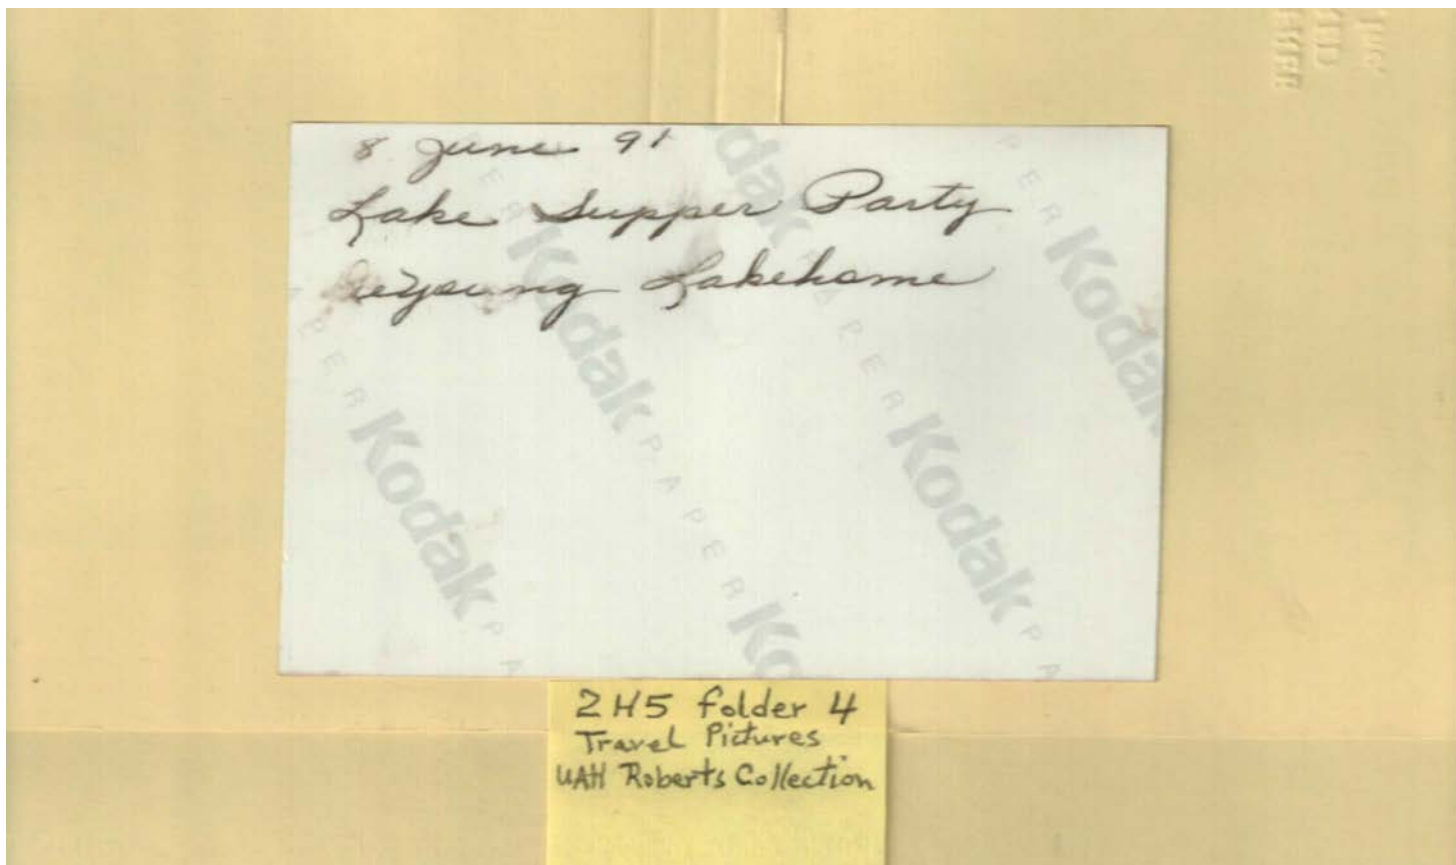 8 June 91
Lake Supper Party
DeYoung Lakehome
Kodak PAPER
2H5 folder 4
Travel Pictures
UAH Roberts Collection